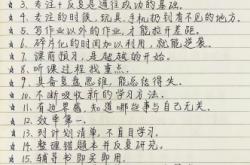 3、专注力是通往成功的基础。
4、专注的时候,玩具、手机扔到看不见的地方。
5、写作业以外的作业,才能拉开差距。
6、碎片化的时间加以利用,就能逆袭。
7、课前预习,是超越的开始。
8、听课过程找重点。
9、具备复盘思维,能总结得失。
10、不断吸收新的学习方法。
11、有边界感,知道哪些事与自己无关。
12、效率第一。
13、列计划清单,不盲目学习。
14、整理错题本并反复研究。
15、辅导书即买即用。